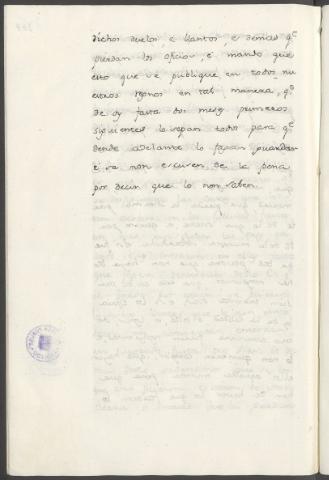 dichos duelos, e llantos, e demas q.e
pierdan los oficios, é mando que
esto que se publique en todos nu
estros regnos en tal manera, q.e
de oy fasta dos meses primeros
siguientes lo sepan todos para q.e
dende adelante lo fagan guardar
é se non escusen de la pena
por decir que lo non saben.